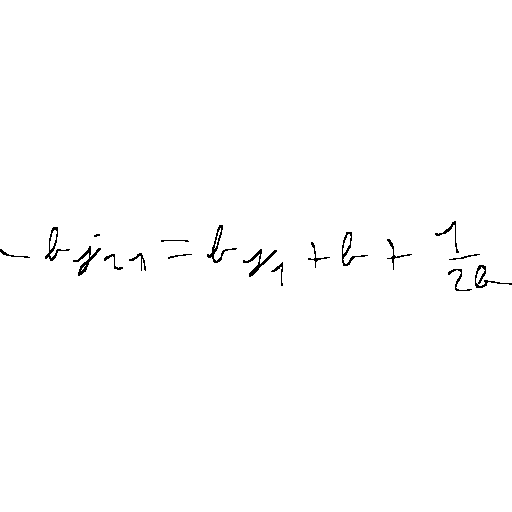 - b j_{21} = b y_1 + b + \frac{1}{2b}